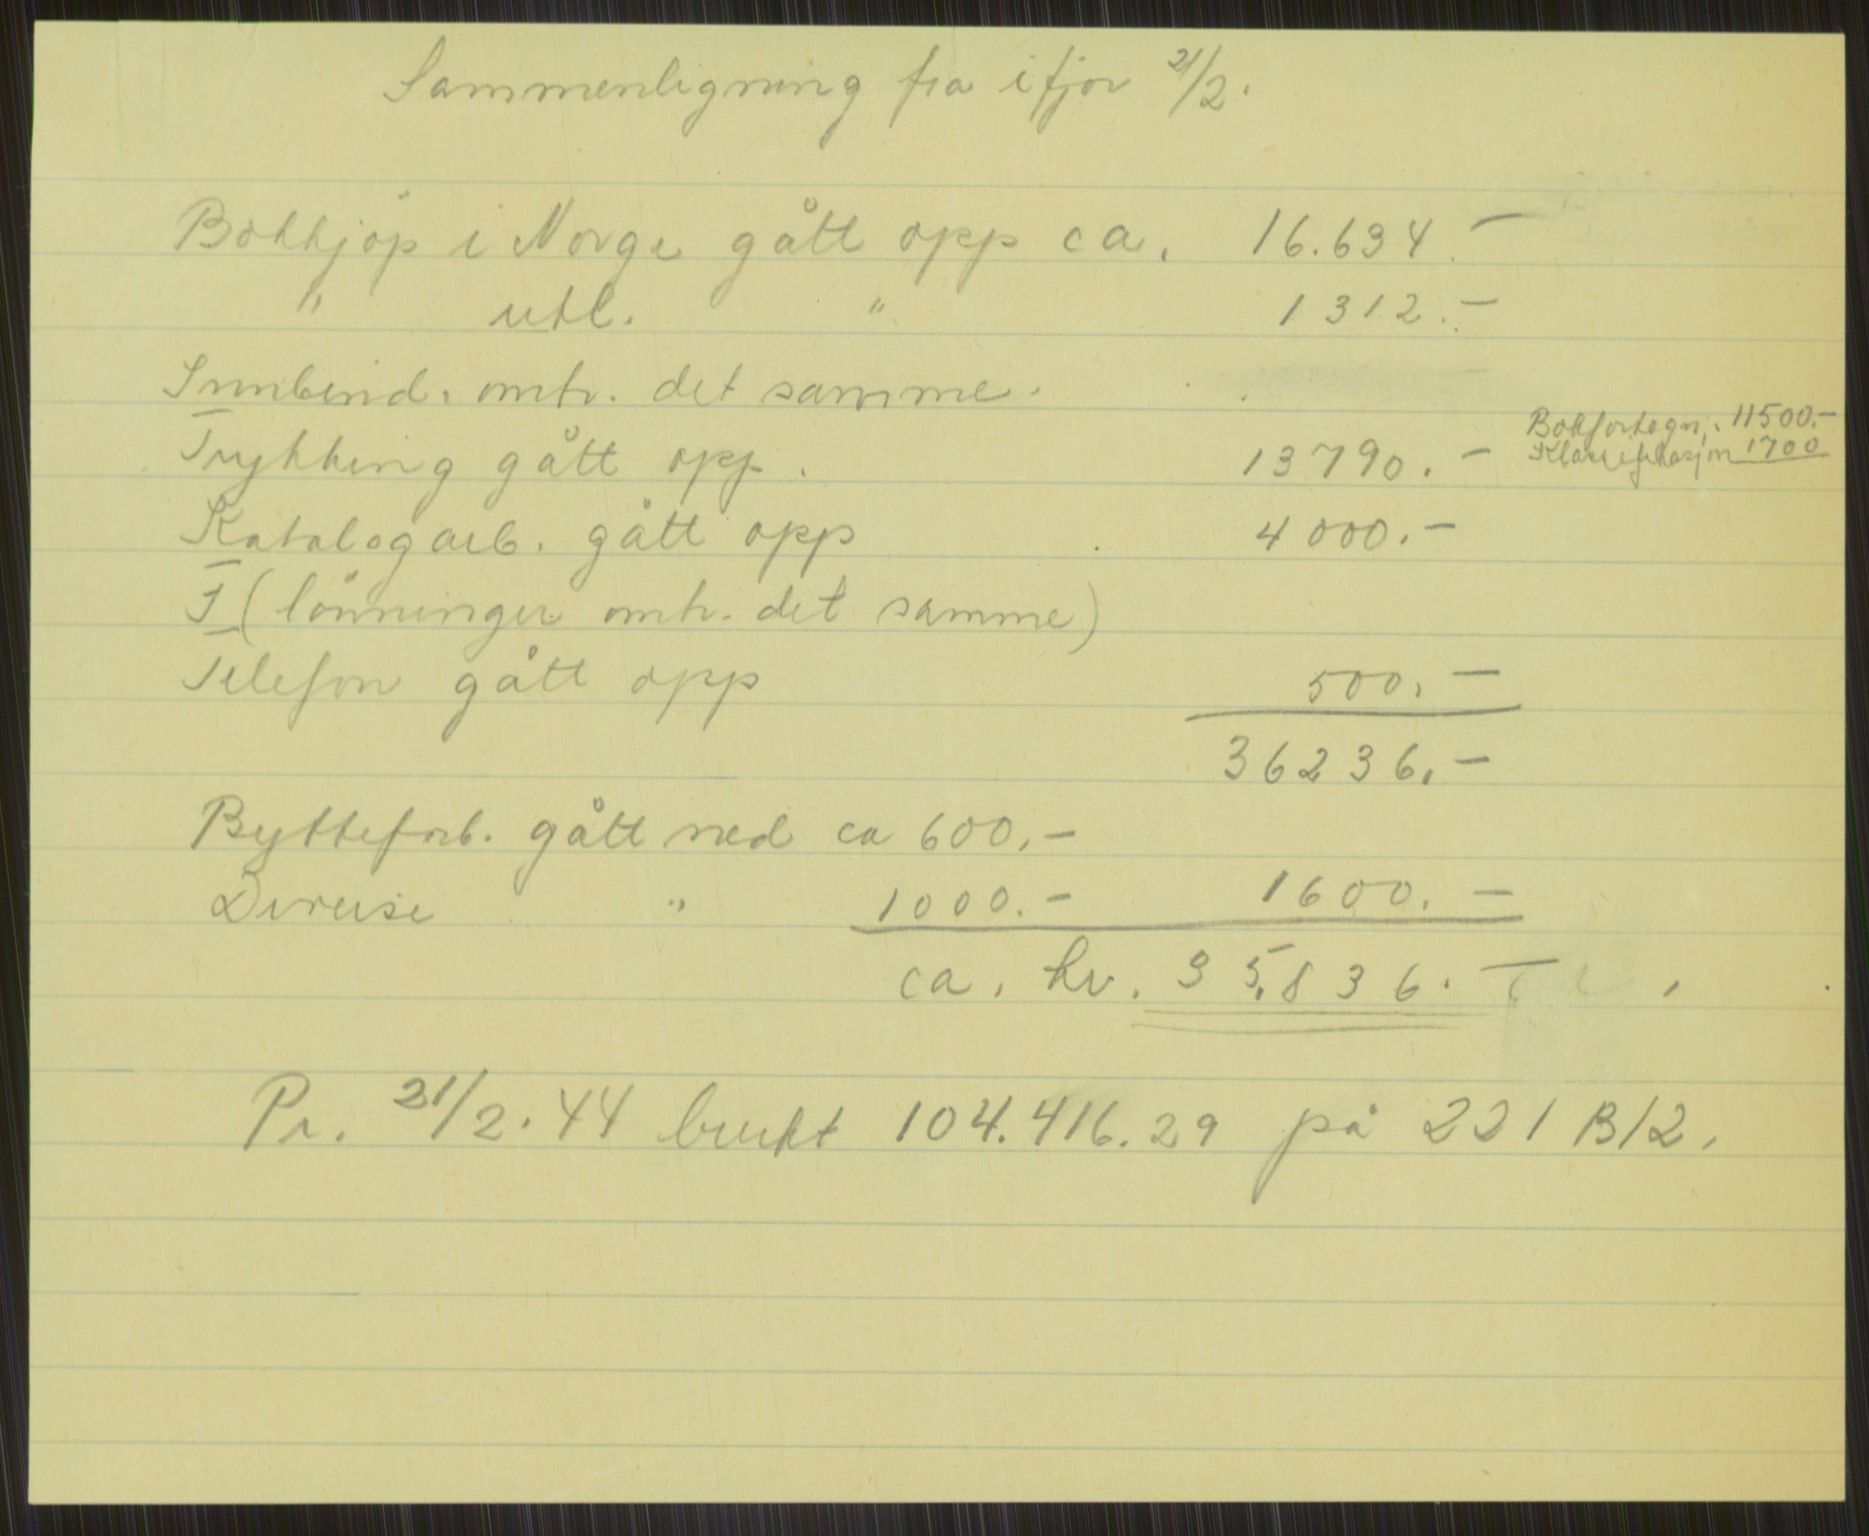 Sammenligning fra ifjor 21/2.
Bokkjøp i Norge gått opp ca. 16.634.—
" utl. " 1312.—
Innbind. omtr. det samme.
Trykking gått opp. 13790.— Bokfortegn. 11500.—
Klassifikasjon 1700
Katalogarb. gått opp 4000.—
I (lönninger omtr. det samme)
Telefon gått opp 500.—
36236.—
Bytteforb. gått ned ca 600.—
Diverse " 1000.— 1600.—
ca. kr. 35.836.—
Pr. 21/2.44 brukt 104.416.29 på 221 B12.